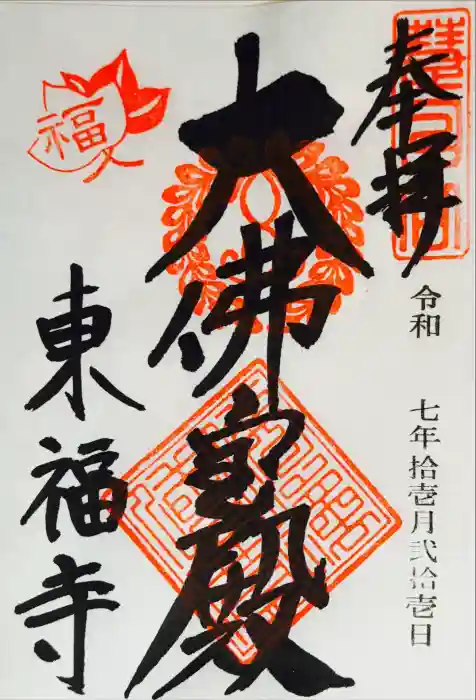 慧日山
奉拝
令和 七年拾壱月弐拾壱日
大佛寶殿
福
東福寺